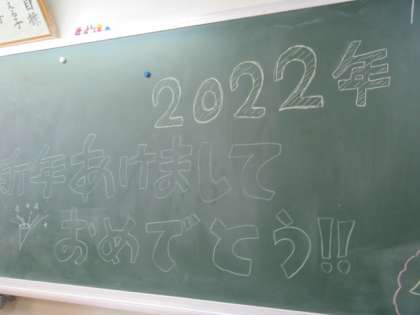 2022年
新年あけまして
おめでとう!!